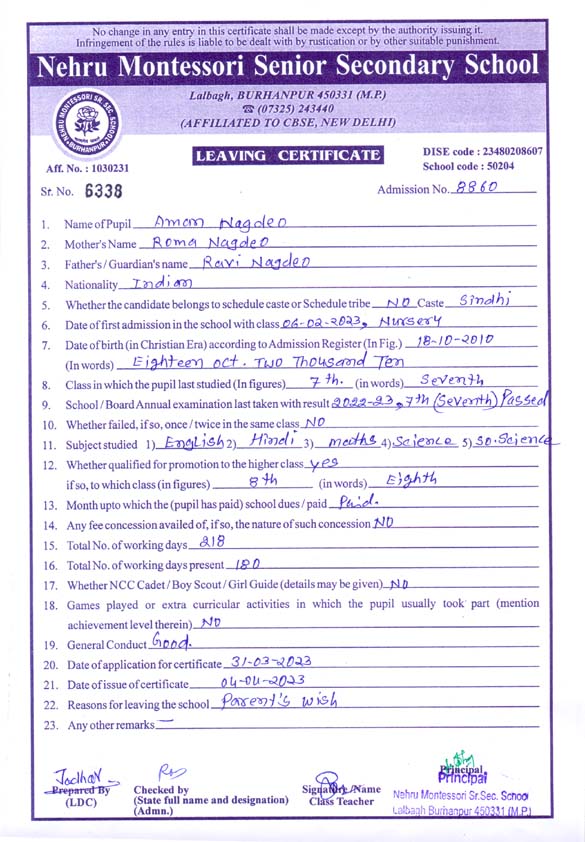 No change in any entry in this certificate shall be made except by the authority issuing it.
Infringement of the rules is liable to be dealt with by rustication or by other suitable punishment.
Nehru Montessori Senior Secondary School
Lalbagh, BURHANPUR 450331 (M.P.)
☎ (07325) 243440
(AFFILIATED TO CBSE, NEW DELHI)
NEHRU MONTESSORI SR. SEC. SCHOOL
BURHANPUR
LEAVING CERTIFICATE
DISE code : 23480208607
School code : 50204
Aff. No. : 1030231
Sr. No. 6338
Admission No. 8860
1. Name of Pupil Aman Nagdeo
2. Mother's Name Roma Nagdeo
3. Father's / Guardian's name Ravi Nagdeo
4. Nationality Indian
5. Whether the candidate belongs to schedule caste or Schedule tribe NO Caste Sindhi
6. Date of first admission in the school with class 06-02-2023, Nursery
7. Date of birth (in Christian Era) according to Admission Register (In Fig.) 18-10-2010
(In words) Eighteen oct. Two Thousand Ten
8. Class in which the pupil last studied (In figures) 7th. (in words) Seventh
9. School / Board Annual examination last taken with result 2022-23, 7th (Seventh) Passed
10. Whether failed, if so, once / twice in the same class NO
11. Subject studied 1) English 2) Hindi 3) maths 4) Science 5) SO. Science
12. Whether qualified for promotion to the higher class yes
if so, to which class (in figures) 8th (in words) Eighth
13. Month upto which the (pupil has paid) school dues / paid Paid.
14. Any fee concession availed of, if so, the nature of such concession NO
15. Total No. of working days 218
16. Total No. of working days present 180
17. Whether NCC Cadet / Boy Scout / Girl Guide (details may be given) NO
18. Games played or extra curricular activities in which the pupil usually took part (mention
achievement level therein) NO
19. General Conduct Good.
20. Date of application for certificate 31-03-2023
21. Date of issue of certificate 04-04-2023
22. Reasons for leaving the school Parent's wish
23. Any other remarks —
Prepared By
(LDC)
Checked by
(State full name and designation)
(Admn.)
Signature/Name
Class Teacher
Principal
Principal
Nehru Montessori Sr.Sec. School
Lalbagh Burhanpur 450331 (M.P.)